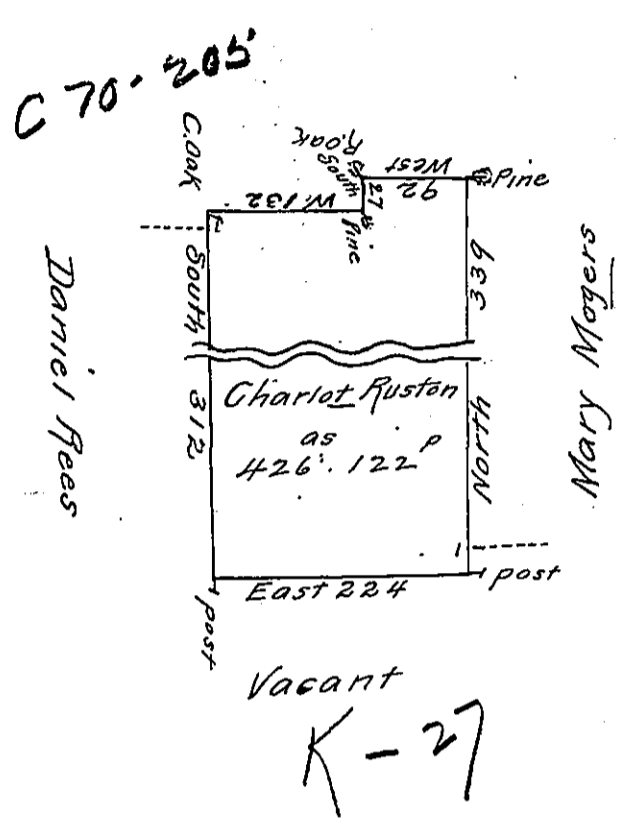 C 70. 205
C.Oak
R.Oak
South
27
West
92
Pine
W. 132
Pine
South 312
339
North
Daniel Rees
Mary Mogers
Charlot Ruston
as
426 : 122 P
1
1
East 224
post
post
Vacant
K - 27